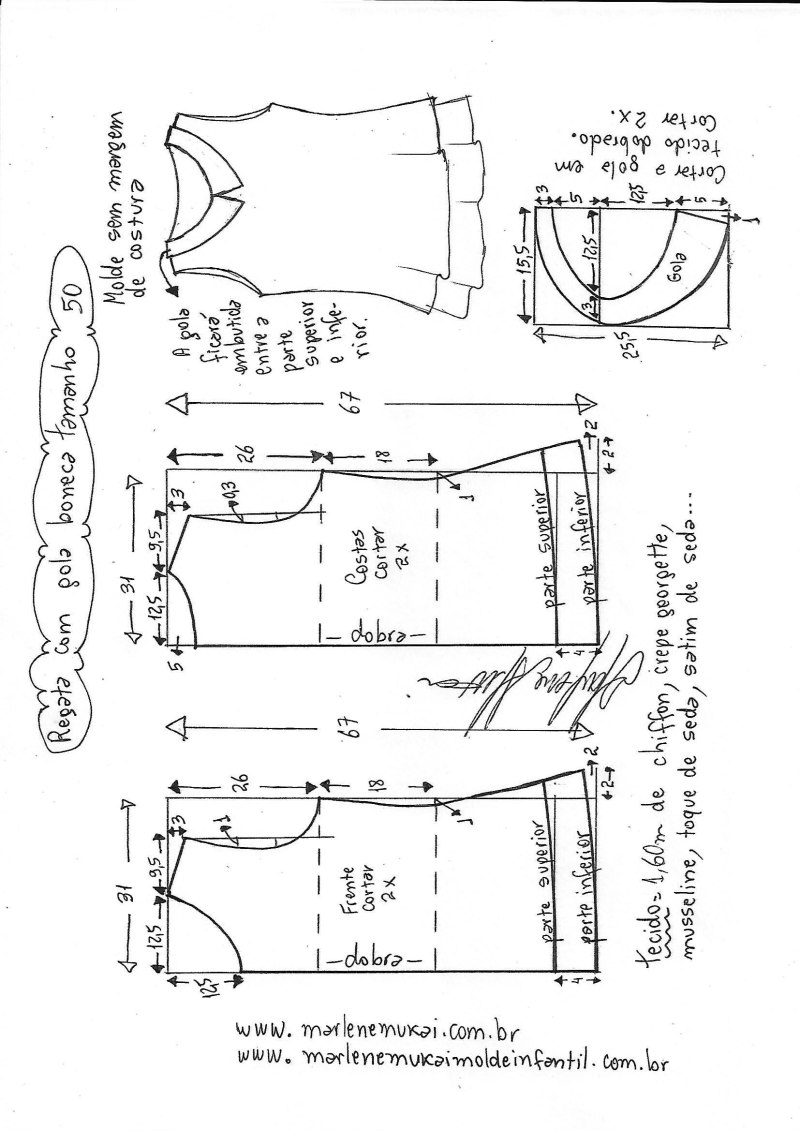 Regata com gola boneca tamanho 50
Molde sem margem
de costura
A gola
ficará
embutida
entre a
parte
superior
e infe-
rior.
Cortar a gola em
tecido dobrado.
Cortar 2x.
3
5
12,5
5
1
15,5
12,5
3
Gola
25,5
67
26
18
31
3
9,5
12,5
5
0,3
1
2
2
Costas
cortar
2x
-dobra-
parte superior
parte inferior
4
67
26
18
31
3
9,5
12,5
12,5
1
1
2
2
Frente
cortar
2x
-dobra-
parte superior
parte inferior
4
tecido=1,60m de chiffon, crepe georgette,
musseline, toque de seda, satim de seda...
www.marlenemukai.com.br
www.marlenemukaimoldeinfantil.com.br